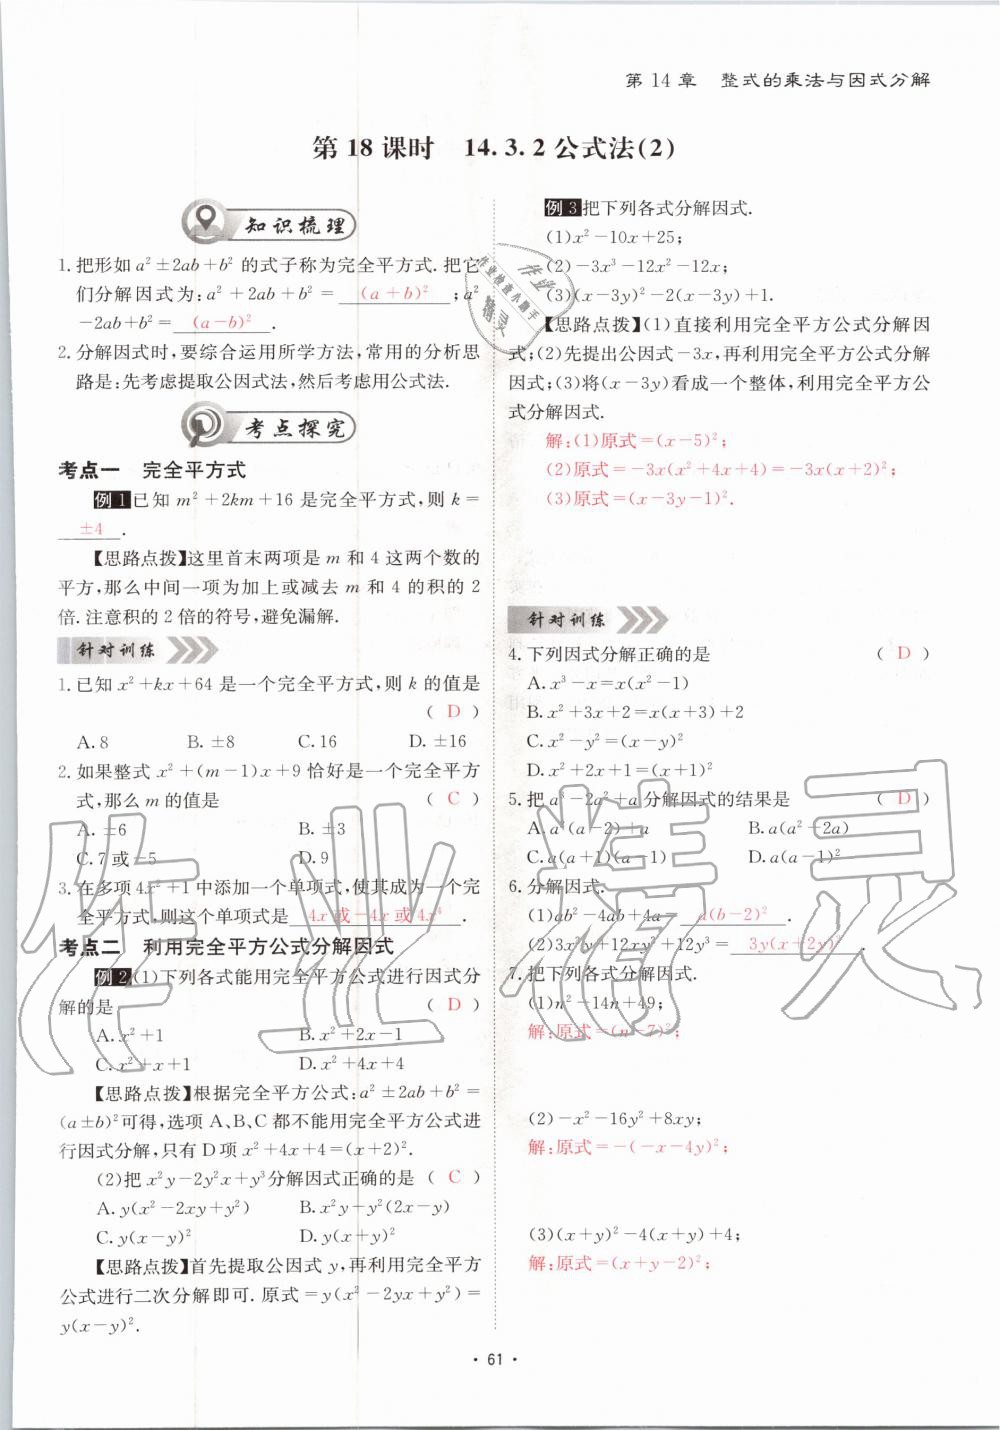 第 14 章　整式的乘法与因式分解
第 18 课时　14.3.2 公式法(2)
知识梳理
1. 把形如 a²±2ab+b² 的式子称为完全平方式. 把它
们分解因式为:a²+2ab+b²= (a+b)² ;a²
-2ab+b²= (a-b)² .
2. 分解因式时,要综合运用所学方法,常用的分析思
路是:先考虑提取公因式法,然后考虑用公式法.
考点探究
考点一　完全平方式
例 1 已知 m²+2km+16 是完全平方式,则 k=
±4 .
【思路点拨】这里首末两项是 m 和 4 这两个数的
平方,那么中间一项为加上或减去 m 和 4 的积的 2
倍. 注意积的 2 倍的符号,避免漏解.
针对训练
1. 已知 x²+kx+64 是一个完全平方式,则 k 的值是
( D )
A. 8　B. ±8　C. 16　D. ±16
2. 如果整式 x²+(m-1)x+9 恰好是一个完全平方
式,那么 m 的值是　( C )
A. ±6　B. ±3
C. 7 或-5　D. 9
3. 在多项 4x²+1 中添加一个单项式,使其成为一个完
全平方式,则这个单项式是 4x 或-4x 或 4x⁴ .
考点二　利用完全平方公式分解因式
例 2 (1)下列各式能用完全平方公式进行因式分
解的是　( D )
A. x²+1　B. x²+2x-1
C. x²+x+1　D. x²+4x+4
【思路点拨】根据完全平方公式:a²±2ab+b²=
(a±b)²可得,选项 A、B、C 都不能用完全平方公式进
行因式分解,只有 D 项 x²+4x+4=(x+2)².
(2)把 x²y-2y²x+y³分解因式正确的是 ( C )
A. y(x²-2xy+y²)　B. x²y-y²(2x-y)
C. y(x-y)²　D. y(x+y)²
【思路点拨】首先提取公因式 y,再利用完全平方
公式进行二次分解即可. 原式=y(x²-2yx+y²)=
y(x-y)².
例 3 把下列各式分解因式.
(1)x²-10x+25;
(2)-3x³-12x²-12x;
(3)(x-3y)²-2(x-3y)+1.
【思路点拨】(1)直接利用完全平方公式分解因
式;(2)先提出公因式-3x,再利用完全平方公式分解
因式;(3)将(x-3y)看成一个整体,利用完全平方公
式分解因式.
解:(1)原式=(x-5)²;
(2)原式=-3x(x²+4x+4)=-3x(x+2)²;
(3)原式=(x-3y-1)².
针对训练
4. 下列因式分解正确的是　( D )
A. x³-x=x(x²-1)
B. x²+3x+2=x(x+3)+2
C. x²-y²=(x-y)²
D. x²+2x+1=(x+1)²
5. 把 a³-2a²+a 分解因式的结果是　( D )
A. a²(a-2)+a　B. a(a²-2a)
C. a(a+1)(a-1)　D. a(a-1)²
6. 分解因式.
(1)ab²-4ab+4a= a(b-2)² .
(2)3x²y+12xy²+12y³= 3y(x+2y)² .
7. 把下列各式分解因式.
(1)n²-14n+49;
解:原式=(n-7)²;
(2)-x²-16y²+8xy;
解:原式=-(-x-4y)²;
(3)(x+y)²-4(x+y)+4;
解:原式=(x+y-2)²;
· 61 ·
作业精灵
作业检查小助手